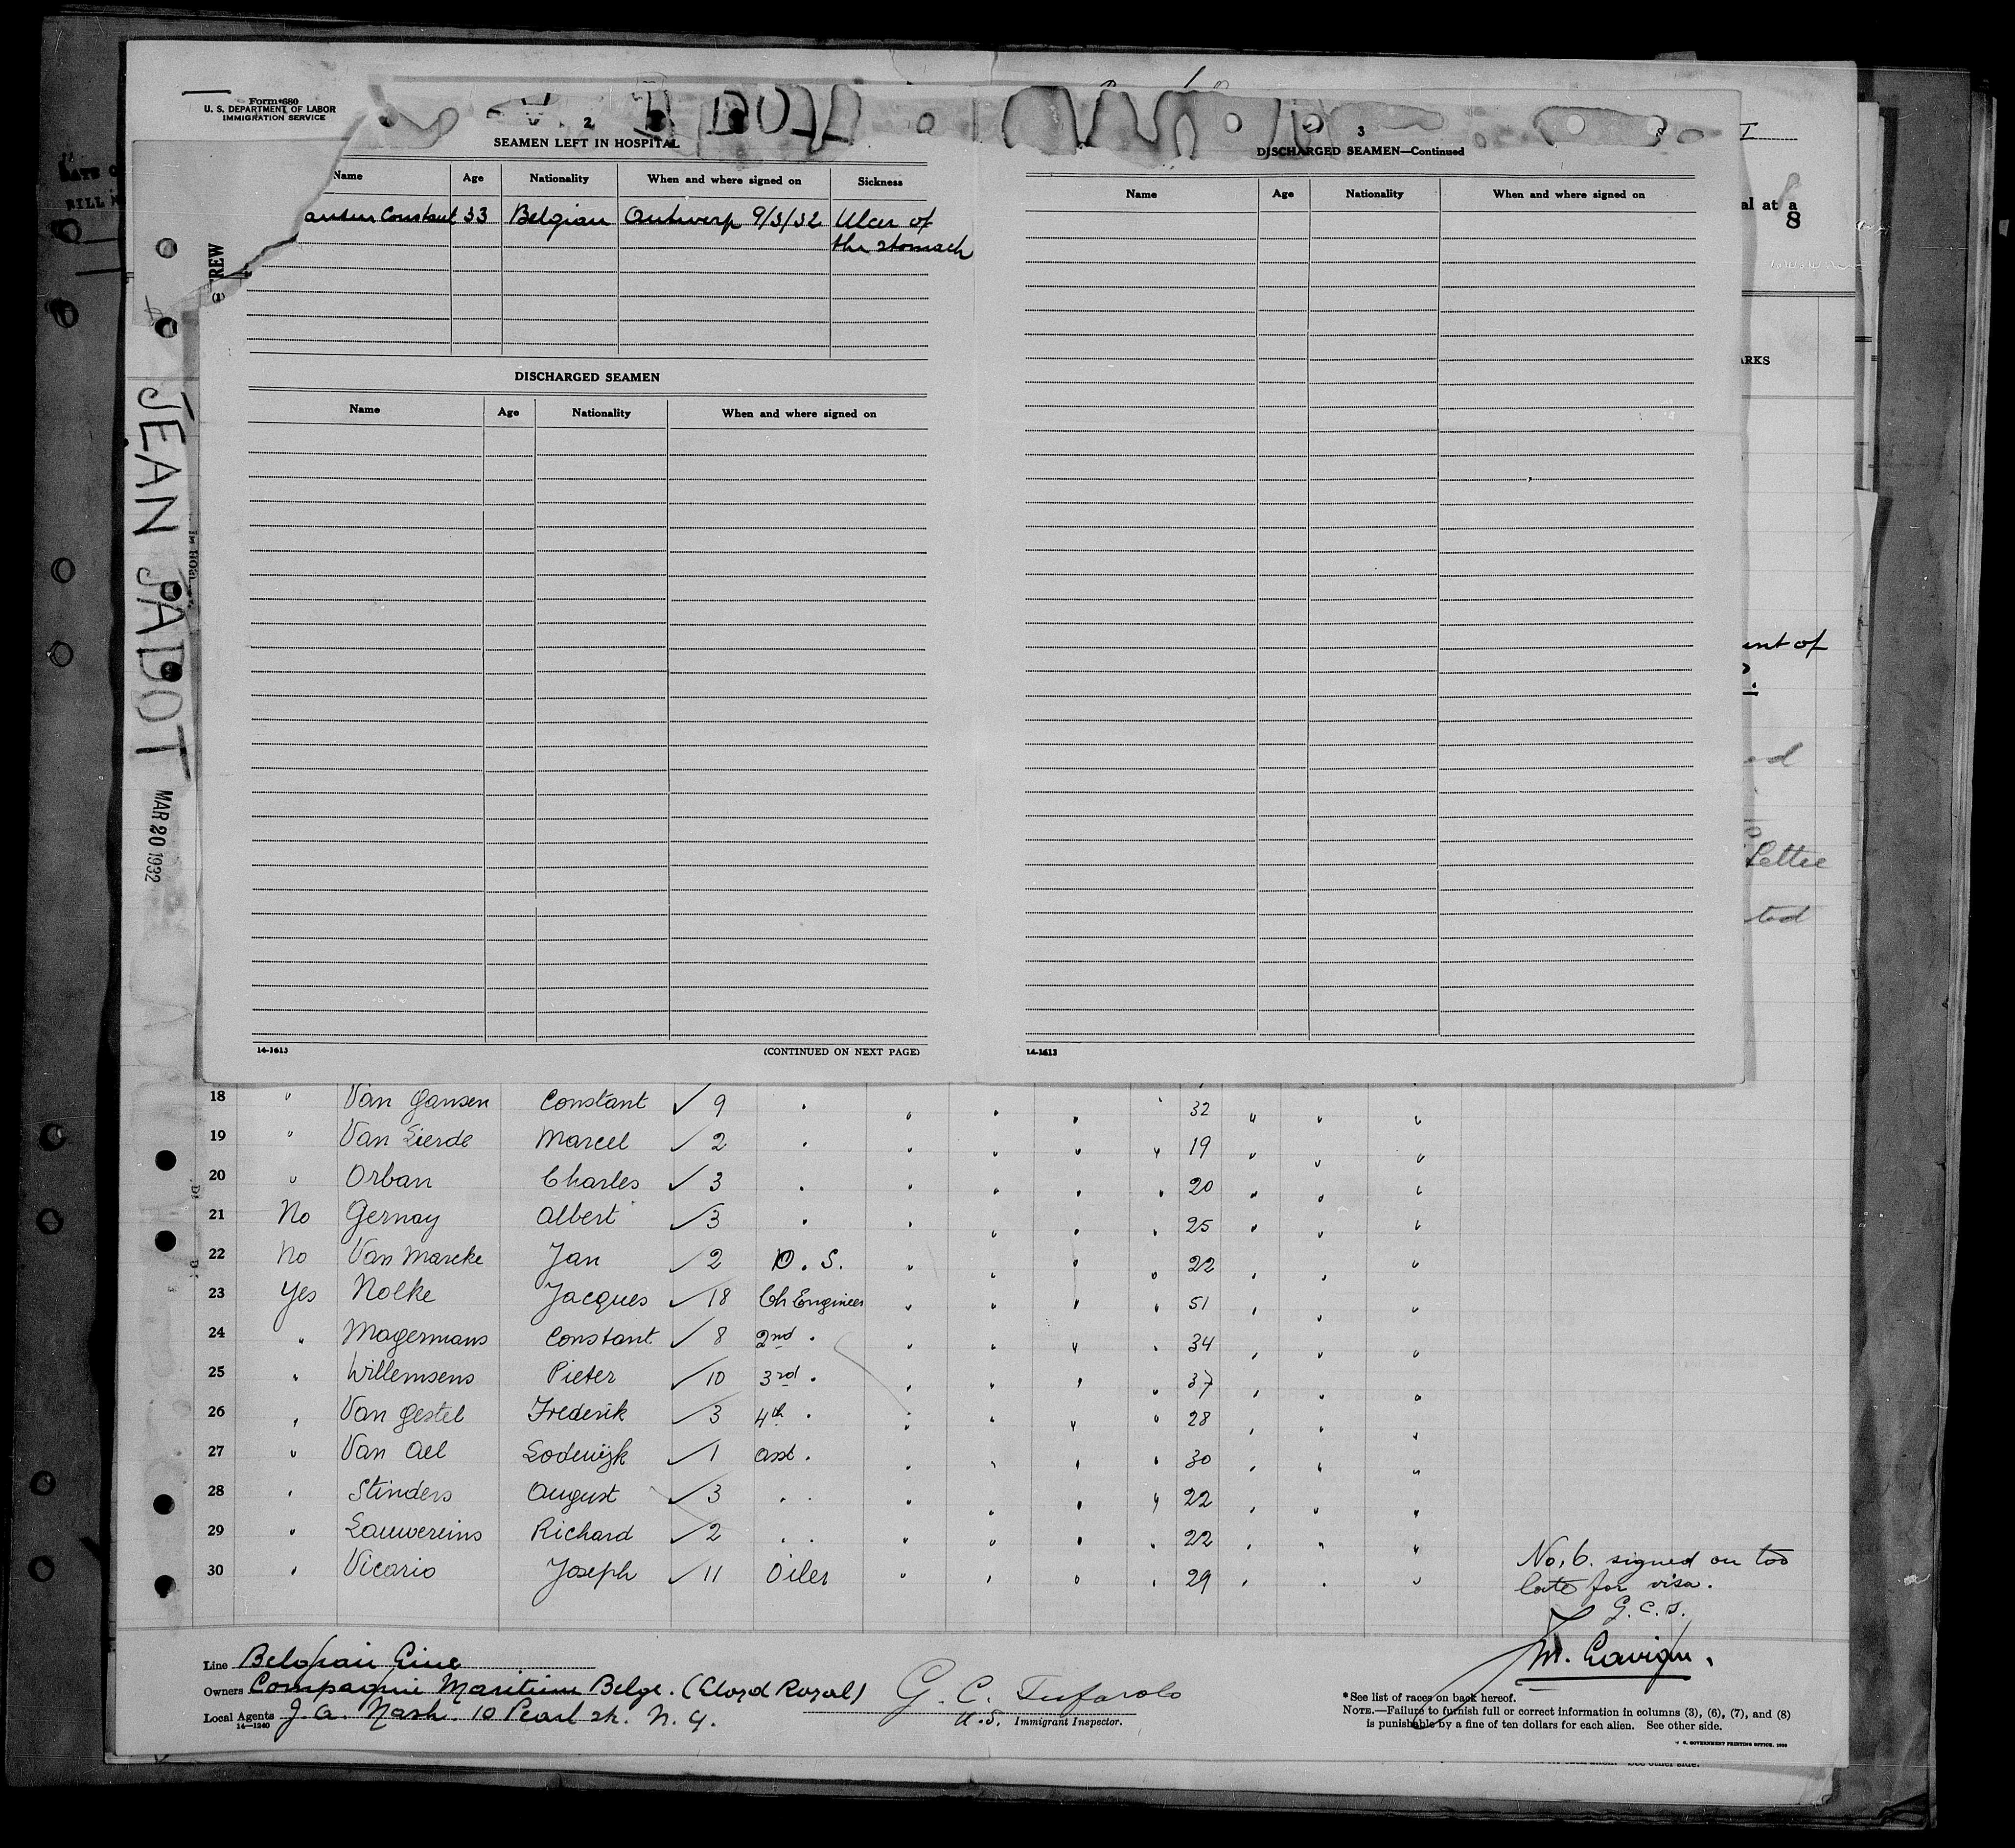 Form 680
U. S. DEPARTMENT OF LABOR
IMMIGRATION SERVICE
2
SEAMEN LEFT IN HOSPITAL
Name Age Nationality When and where signed on Sickness
Constant 33 Belgian Antwerp 9/3/32 Ulcer of
the stomach
DISCHARGED SEAMEN
Name Age Nationality When and where signed on
14-1613 (CONTINUED ON NEXT PAGE)
3
DISCHARGED SEAMEN—Continued
Name Age Nationality When and where signed on
14-1613
JEAN JADOT
MAR 20 1932
al at a
8
ARKS
18 " Van Gansen Constant ✓ 9 " " " " " 32 " " "
19 " Van Lierde Marcel ✓ 2 " " " " " 19 " " "
20 " Orban Charles ✓ 3 " " " " " 20 " " "
21 No Gernay Albert ✓ 3 " " " " " 25 " " "
22 No Van Marcke Jan ✓ 2 O.S. " " " " 22 " " "
23 Yes Nolke Jacques ✓ 18 Ch Engineer " " " " 51 " " "
24 " Magermans Constant ✓ 8 2nd " " " " " 34 " " "
25 " Willemsens Pieter ✓ 10 3rd " " " " " 37 " " "
26 " Van Gestel Frederik ✓ 3 4th " " " " " 28 " " "
27 " Van Ael Lodewijk ✓ 1 asst. " " " " 30 " " "
28 " Stinders August ✓ 3 " " " " " " 22 " " "
29 " Lauwereins Richard ✓ 2 " " " " " " 22 " " "
30 " Vicario Joseph ✓ 11 Oiler " " " " 29 " " "
No. 6. signed on too
late for visa.
G.C.T.
Line Belgian Line
Owners Compagnie Maritime Belge. (Lloyd Royal)
Local Agents J. A. Nash. 10 Pearl st. N.Y.
14-1240
G. C. Tufarolo
U.S. Immigrant Inspector.
*See list of races on back hereof.
NOTE.—Failure to furnish full or correct information in columns (3), (6), (7), and (8)
is punishable by a fine of ten dollars for each alien. See other side.